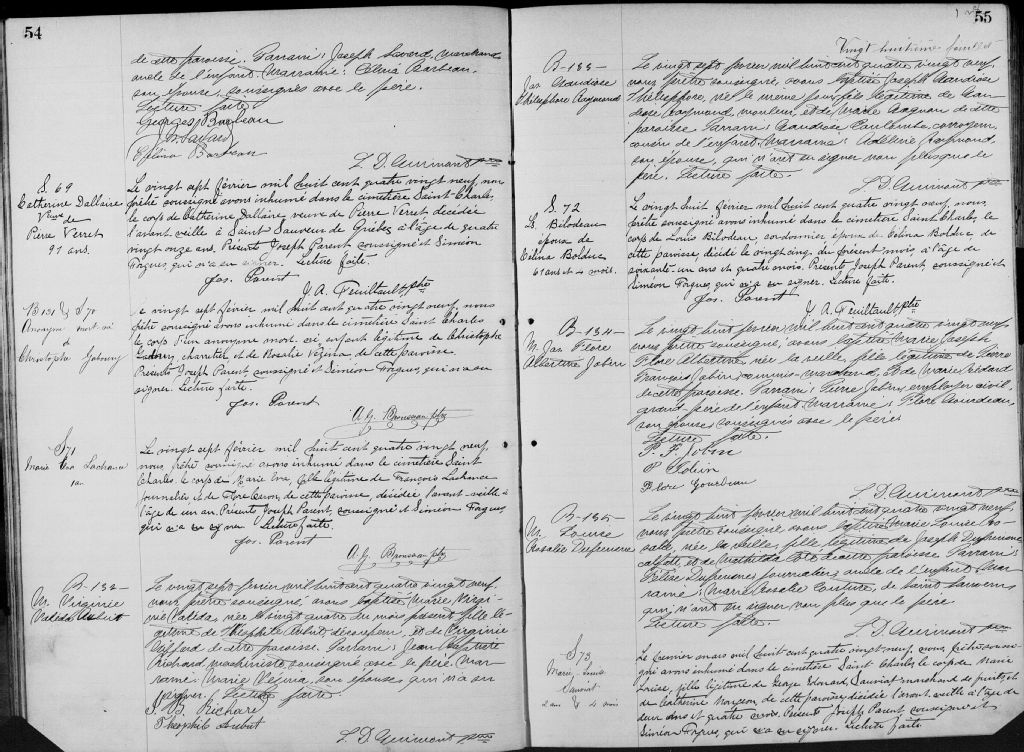 54
de cette paroisse. Parrain: Joseph Savard, marchand
oncle de l'enfant. Marraine: Elina Barbeau,
son épouse, soussignés avec le père.
Lecture faite.
Georges Barbeau
J. Savard
Barbeau
L. D. Guimont ptre
S. 69
Catherine Dallaire
Veuve de
Pierre Verret
91 ans.
Le vingt sept février mil huit cent quatre vingt neuf, nous
prêtre soussigné avons inhumé dans le cimetière Saint-Charles,
le corps de Catherine Dallaire, veuve de Pierre Verret décédée
l'avant-veille à Saint Sauveur de Québec à l'âge de quatre
vingt onze ans. Présents Joseph Parent soussigné et Siméon
Forgues, qui n'a su signer. Lecture faite.
Jos. Parent
J. A. Feuiltault ptre
B 131 & S 70
Anonyme mort né
Christophe
Le vingt sept février mil huit cent quatre vingt neuf, nous
prêtre soussigné avons inhumé dans le cimetière Saint Charles
le corps d'un anonyme mort-né enfant légitime de Christophe
charretier, et de Rosalie Vézina de cette paroisse.
Présents Joseph Parent, soussigné et Siméon Forgues, qui n'a su
signer. Lecture faite.
Jos. Parent
A. G. Brousseau ptre
S 71
Marie Eva Lachance
1 an
Le vingt sept février mil huit cent quatre vingt neuf,
nous, prêtre soussigné avons inhumé dans le cimetière Saint
Charles. le corps de Marie Eva, fille légitime de François Lachance
journalier et de Flore Caron, de cette paroisse, décédée l'avant-veille à
l'âge de un an. Présents Joseph Parent, soussigné et Siméon Forgues,
qui n'a su signer. Lecture faite.
Jos. Parent
A. G. Brousseau ptre
B-132
M. Virginie
Valéda Aubut
Le vingt sept février mil huit cent quatre vingt neuf,
nous, prêtre soussigné, avons baptisé Marie, Virgi-
nie Valéda, née le vingt quatre du mois présent fille lé-
gitime de Théophile Aubut et de Virginie
de cette paroisse. Parrain: Jean Baptiste
Richard, machiniste, soussigné avec le père. Mar-
raine: Marie Vézina, son épouse qui n'a su
signer. Lecture faite.
J. B. Richard
Théophile Aubut
L. D. Guimont ptre
55
Vingt huitième feuillet
B-133
Jos Audiose
Thélesphore Raymond
Le vingt sept février mil huit cent quatre vingt neuf,
nous, prêtre soussigné, avons baptisé Joseph
Thélesphore, né le même jour, fils légitime de
Raymond, mouleur, et de Marie Gagnon de cette
paroisse. Parrain: Lacombe, corroyeur,
cousin de l'enfant. Marraine: Adéline Raymond,
son épouse, qui n'ont su signer non plus que le
père. Lecture faite.
L. D. Guimont ptre
S. 72
Ls. Bilodeau
époux de
Célina Bolduc
61 ans et 4 mois.
Le vingt huit février mil huit cent quatre vingt neuf, nous,
prêtre soussigné avons inhumé dans le cimetière St. Charles, le
corps de Louis Bilodeau cordonnier époux de Célina Bolduc de
cette paroisse, décédé le vingt cinq du présent mois, à l'âge de
soixante-un ans et quatre mois. Présents Joseph Parent, soussigné et
Siméon Forgues, qui n'a su signer. Lecture faite.
Jos. Parent
J. A. Feuiltault ptre
B-134
M. Jos Flore
Albertine Jobin
Le vingt huit février mil huit cent quatre vingt neuf,
nous, prêtre soussigné, avons baptisé Marie Joseph
Flore Albertine, née la veille, fille légitime de Pierre
François Jobin, commis-marchand, et de Marie Bédard
de cette paroisse. Parrain: Pierre Jobin, employé civil,
grand-père de l'enfant. Marraine: Flore Gourdeau,
son épouse soussignés avec le père.
Lecture faite.
P. F. Jobin
P Jobin
Flore Gourdeau
L. D. Guimont ptre
B-135
M. Louise
Rosalie Dufresne
Le vingt huit février mil huit cent quatre vingt neuf,
nous, prêtre soussigné, avons baptisé Marie, Louise Ro-
salie, née la veille, fille légitime de Joseph Dufresne
calfate, et de Mathilda de cette paroisse. Parrain:
Elisé Dufresne, journalier, oncle de l'enfant. Mar-
raine: Marie Rosalie Couture, de Saint Sauveur
qui n'ont su signer non plus que le père.
Lecture faite.
L. D. Guimont ptre
S 73
Marie Louise
Sauviat
2 ans & 4 mois
Le premier mars mil huit cent quatre vingt neuf, nous, prêtre soussi-
gné avons inhumé dans le cimetière Saint Charles, le corps de Marie
Louise, fille légitime de George Edouard Sauviat marchand de fruits, et
de Catherine de cette paroisse, décédée l'avant-veille à l'âge de
deux ans et quatre mois. Présents Joseph Parent soussigné et
Siméon Forgues, qui n'a su signer. Lecture faite